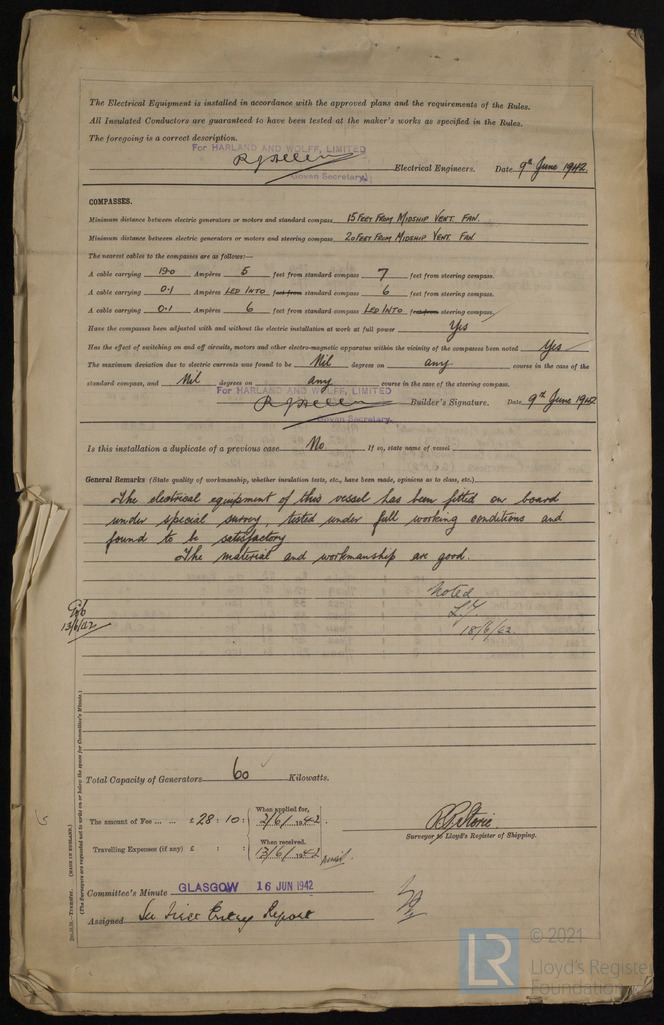 The Electrical Equipment is installed in accordance with the approved plans and the requirements of the Rules.
All Insulated Conductors are guaranteed to have been tested at the maker's works as specified in the Rules.
The foregoing is a correct description.
For HARLAND AND WOLFF, LIMITED
Electrical Engineers. Date 9th June 1942.
Govan Secretary.
COMPASSES.
Minimum distance between electric generators or motors and standard compass 15 FEET FROM MIDSHIP VENT. FAN.
Minimum distance between electric generators or motors and steering compass 20 FEET FROM MIDSHIP VENT. FAN
The nearest cables to the compasses are as follows:—
A cable carrying 19.0 Ampères 5 feet from standard compass 7 feet from steering compass.
A cable carrying 0.1 Ampères LED INTO feet from standard compass 6 feet from steering compass.
A cable carrying 0.1 Ampères 6 feet from standard compass LED INTO feet from steering compass.
Have the compasses been adjusted with and without the electric installation at work at full power Yes
Has the effect of switching on and off circuits, motors and other electro-magnetic apparatus within the vicinity of the compasses been noted Yes
The maximum deviation due to electric currents was found to be Nil degrees on any course in the case of the
standard compass, and Nil degrees on any course in the case of the steering compass.
For HARLAND AND WOLFF, LIMITED
Builder's Signature. Date 9th June 1942
Govan Secretary.
Is this installation a duplicate of a previous case No. If so, state name of vessel
General Remarks (State quality of workmanship, whether insulation tests, etc., have been made, opinions as to class, etc.)
The electrical equipment of this vessel has been fitted on board
under special survey, tested under full working conditions and
found to be satisfactory
The material and workmanship are good.
Noted
18/6/42.
13/6/42
Total Capacity of Generators 60 Kilowatts.
The amount of Fee ... ... £ 28 : 10 :
When applied for,
2/6/1942.
Surveyor to Lloyd's Register of Shipping.
Travelling Expenses (if any) £ : :
When received.
13/6/1942
Committee's Minute GLASGOW 16 JUN 1942
Assigned See First Entry Report
(The Surveyors are requested not to write on or below the space for Committee's Minute.)
(MADE IN ENGLAND.)
Transfer.
LR
© 2021
Lloyd's Register
Foundation